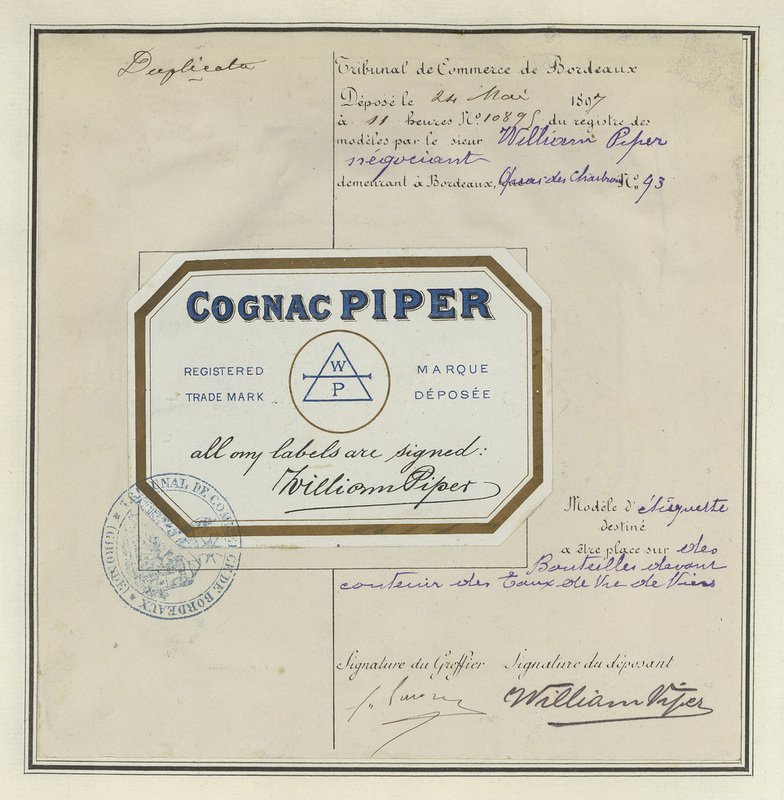 Duplicata
Tribunal de Commerce de Bordeaux
Déposé le 24 Mai 1897
à 11 heures Nº 10895 du registre des
modèles par le sieur William Piper
négociant
demeurant à Bordeaux, Quai des Chartrons Nº 93
COGNAC PIPER
REGISTERED
TRADE MARK
W
P
MARQUE
DÉPOSÉE
all my labels are signed:
William Piper
TRIBUNAL DE COMMERCE DE BORDEAUX * (GIRONDE) *
Modèle d'étiquette
destiné
a être place sur des
Bouteilles devant
contenir des Eaux de Vie de Vins
Signature du Greffier Signature du déposant
William Piper